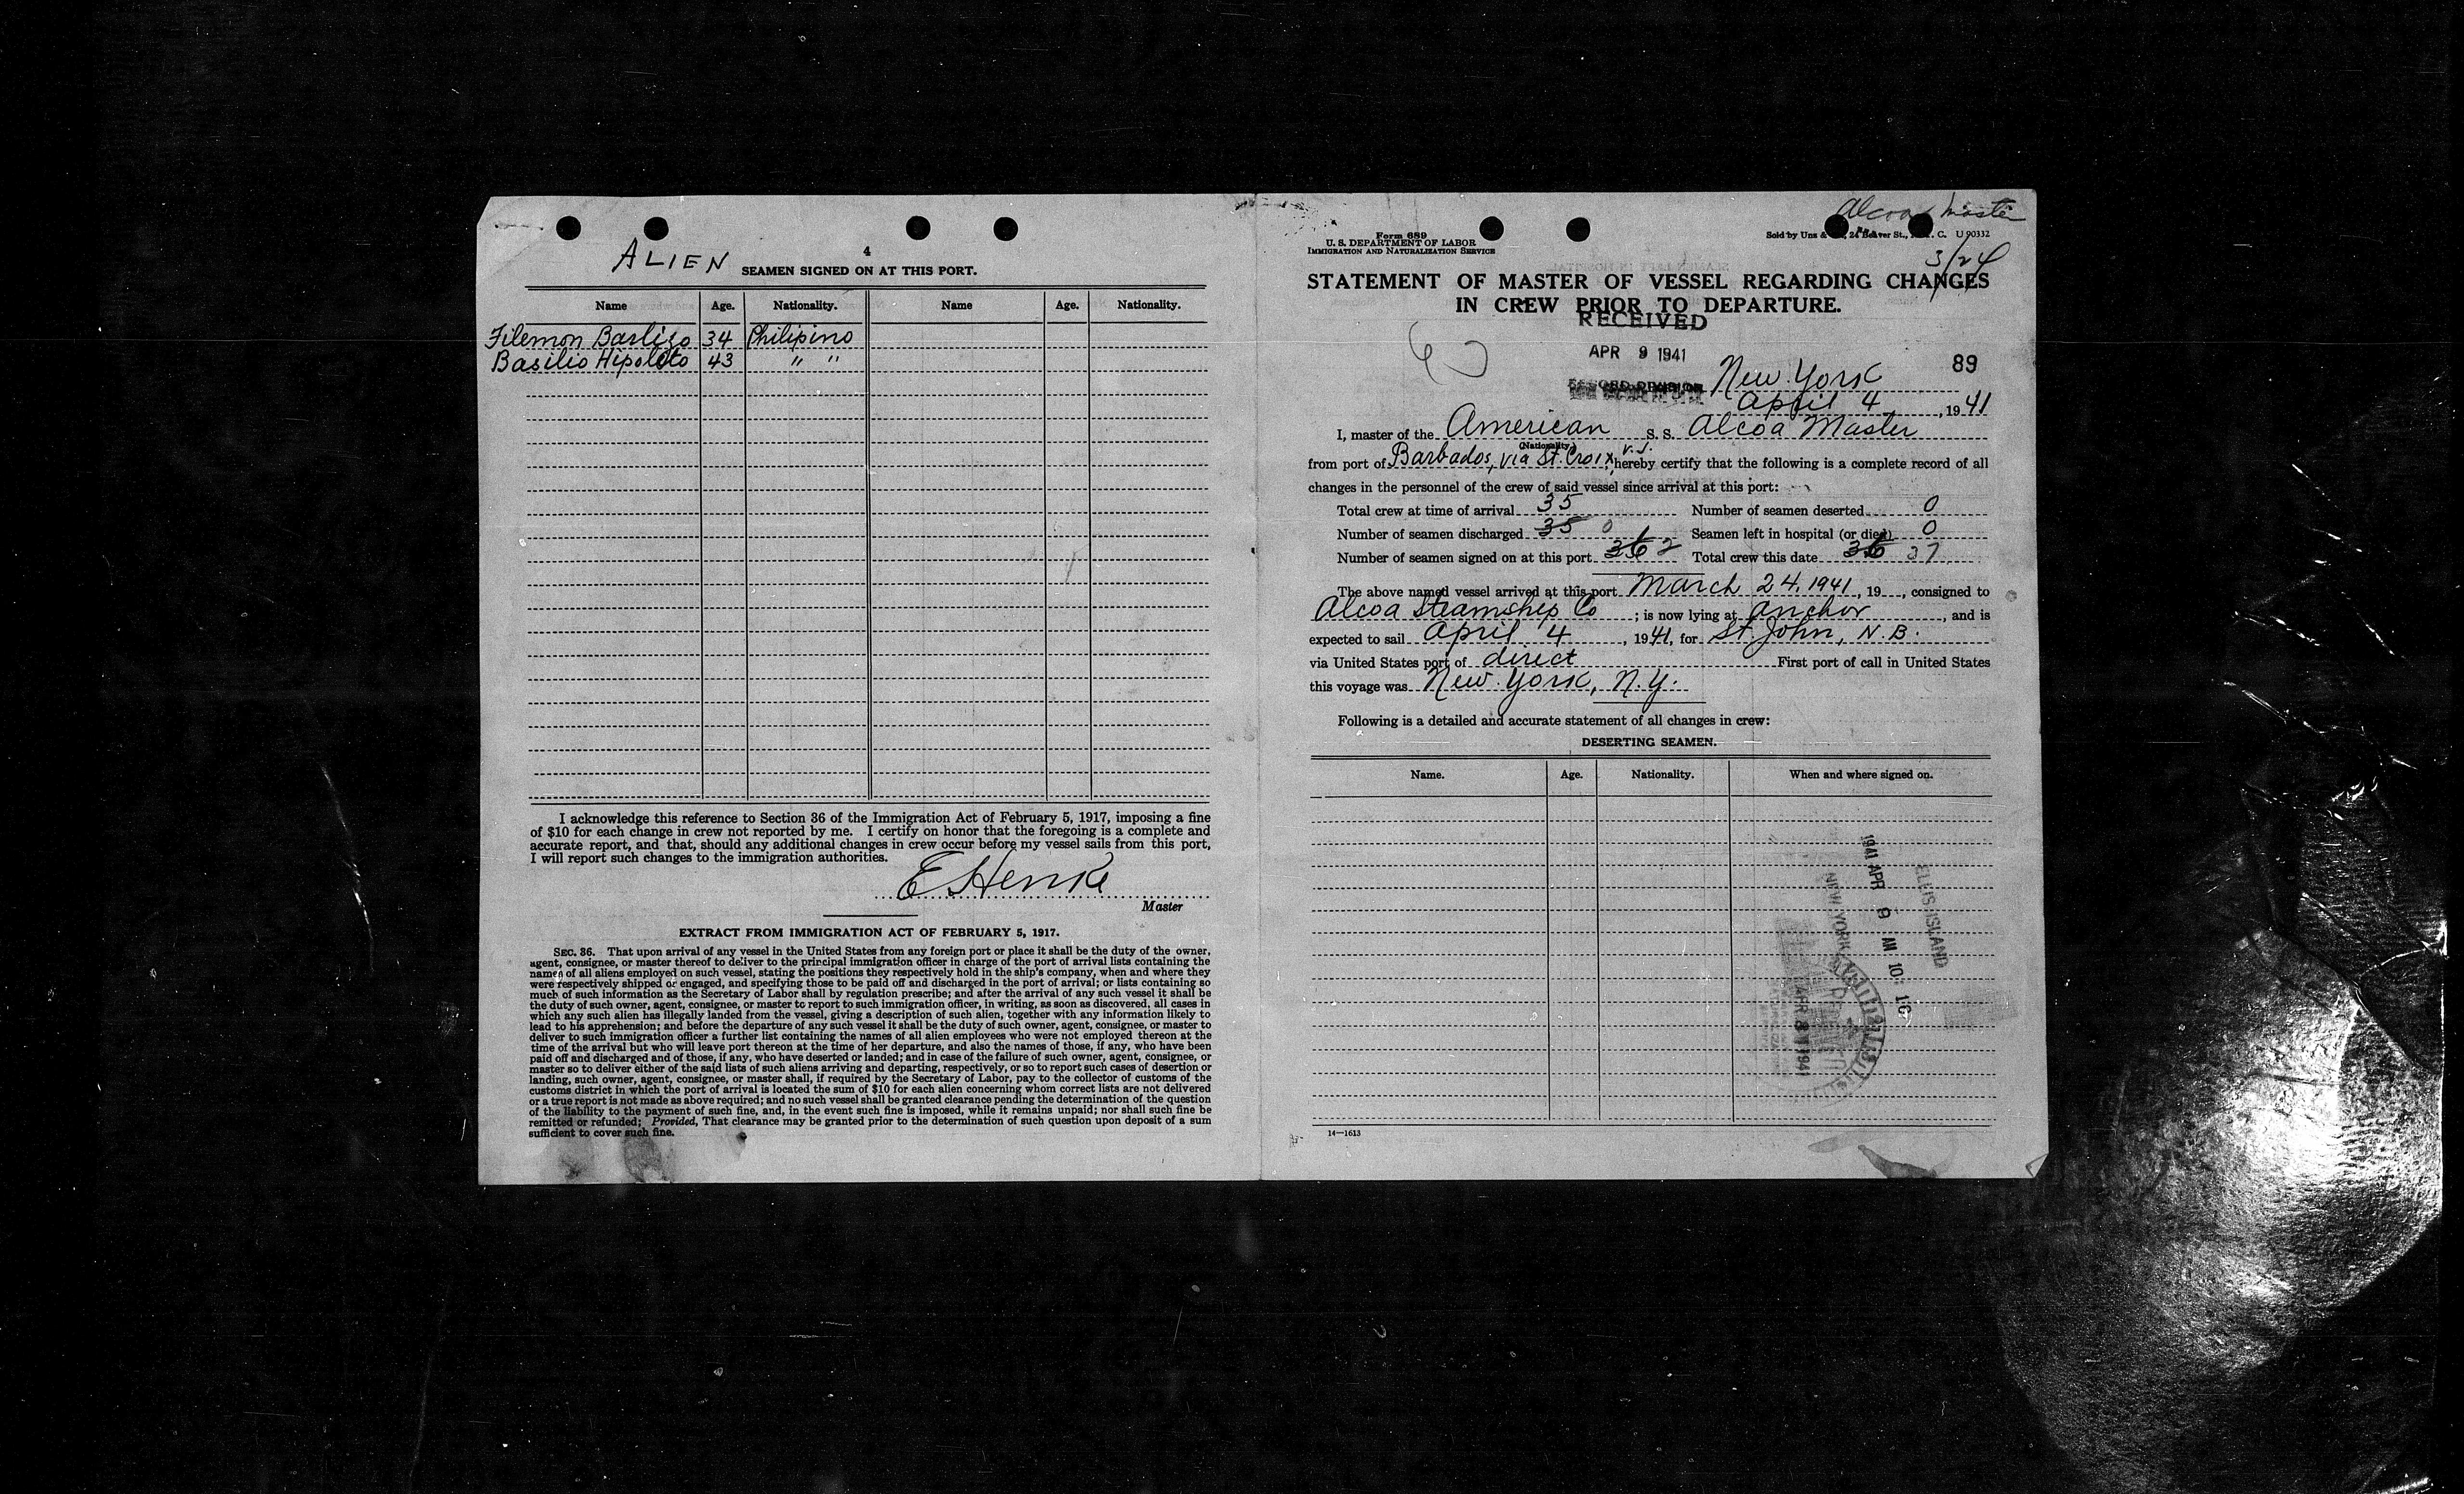 4
ALIEN SEAMEN SIGNED ON AT THIS PORT.
Name Age. Nationality. Name Age. Nationality.
Filemon Baslizo 34 Philipino
Basilio Hipolito 43 " "
I acknowledge this reference to Section 36 of the Immigration Act of February 5, 1917, imposing a fine
of $10 for each change in crew not reported by me. I certify on honor that the foregoing is a complete and
accurate report, and that, should any additional changes in crew occur before my vessel sails from this port,
I will report such changes to the immigration authorities.
E Henke
Master
EXTRACT FROM IMMIGRATION ACT OF FEBRUARY 5, 1917.
SEC. 36. That upon arrival of any vessel in the United States from any foreign port or place it shall be the duty of the owner,
agent, consignee, or master thereof to deliver to the principal immigration officer in charge of the port of arrival lists containing the
names of all aliens employed on such vessel, stating the positions they respectively hold in the ship's company, when and where they
were respectively shipped or engaged, and specifying those to be paid off and discharged in the port of arrival; or lists containing so
much of such information as the Secretary of Labor shall by regulation prescribe; and after the arrival of any such vessel it shall be
the duty of such owner, agent, consignee, or master to report to such immigration officer, in writing, as soon as discovered, all cases in
which any such alien has illegally landed from the vessel, giving a description of such alien, together with any information likely to
lead to his apprehension; and before the departure of any such vessel it shall be the duty of such owner, agent, consignee, or master to
deliver to such immigration officer a further list containing the names of all alien employees who were not employed thereon at the
time of the arrival but who will leave port thereon at the time of her departure, and also the names of those, if any, who have been
paid off and discharged and of those, if any, who have deserted or landed; and in case of the failure of such owner, agent, consignee, or
master so to deliver either of the said lists of such aliens arriving and departing, respectively, or so to report such cases of desertion or
landing, such owner, agent, consignee, or master shall, if required by the Secretary of Labor, pay to the collector of customs of the
customs district in which the port of arrival is located the sum of $10 for each alien concerning whom correct lists are not delivered
or a true report is not made as above required; and no such vessel shall be granted clearance pending the determination of the question
of the liability to the payment of such fine, and, in the event such fine is imposed, while it remains unpaid; nor shall such fine be
remitted or refunded; Provided, That clearance may be granted prior to the determination of such question upon deposit of a sum
sufficient to cover such fine.
Alcoa Master
3/24
Form 689
U. S. DEPARTMENT OF LABOR
IMMIGRATION AND NATURALIZATION SERVICE
Sold by Unz & 24 Beaver St., C. U 90332
STATEMENT OF MASTER OF VESSEL REGARDING CHANGES
IN CREW PRIOR TO DEPARTURE.
RECEIVED
APR 9 1941
89
New York
April 4, 1941
I, master of the American S. S. Alcoa Master
(Nationality)
from port of Barbados, via St. Croix, V.I. hereby certify that the following is a complete record of all
changes in the personnel of the crew of said vessel since arrival at this port:
Total crew at time of arrival 35 Number of seamen deserted 0
Number of seamen discharged 35 0 Seamen left in hospital (or died) 0
Number of seamen signed on at this port 36 2 Total crew this date 36 37
The above named vessel arrived at this port March 24, 1941, 19 , consigned to
Alcoa Steamship Co ; is now lying at anchor , and is
expected to sail April 4 , 1941, for St. John, N.B.
via United States port of direct First port of call in United States
this voyage was New York, N.Y.
Following is a detailed and accurate statement of all changes in crew:
DESERTING SEAMEN.
Name. Age. Nationality. When and where signed on.
ELLIS ISLAND
1941 APR 9 AM 10: 16
NEW YORK
APR 8 1941
14—1613